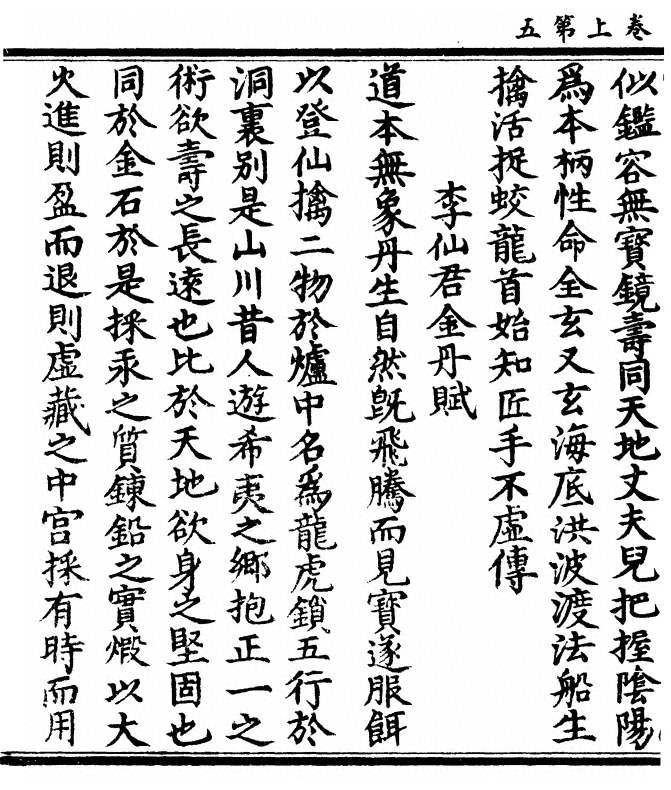 卷上第五
似鑑容無寳鏡壽同天地丈夫兒把握隂陽
爲本柄性命全玄又玄海底洪波渡法船生
擒活捉蛟龍首始知匠手不虚傳
李仙君金丹賦
道本無象丹生自然旣飛騰而見寳遂服餌
以登仙擒二物於爐中名爲龍虎鎖五行於
洞裏别是山川昔人遊希夷之鄉抱正一之
術欲壽之長遠也比於天地欲身之堅固也
同於金石於是採汞之質鍊鉛之實煆以大
火進則盈而退則虚藏之中宫採有時而用